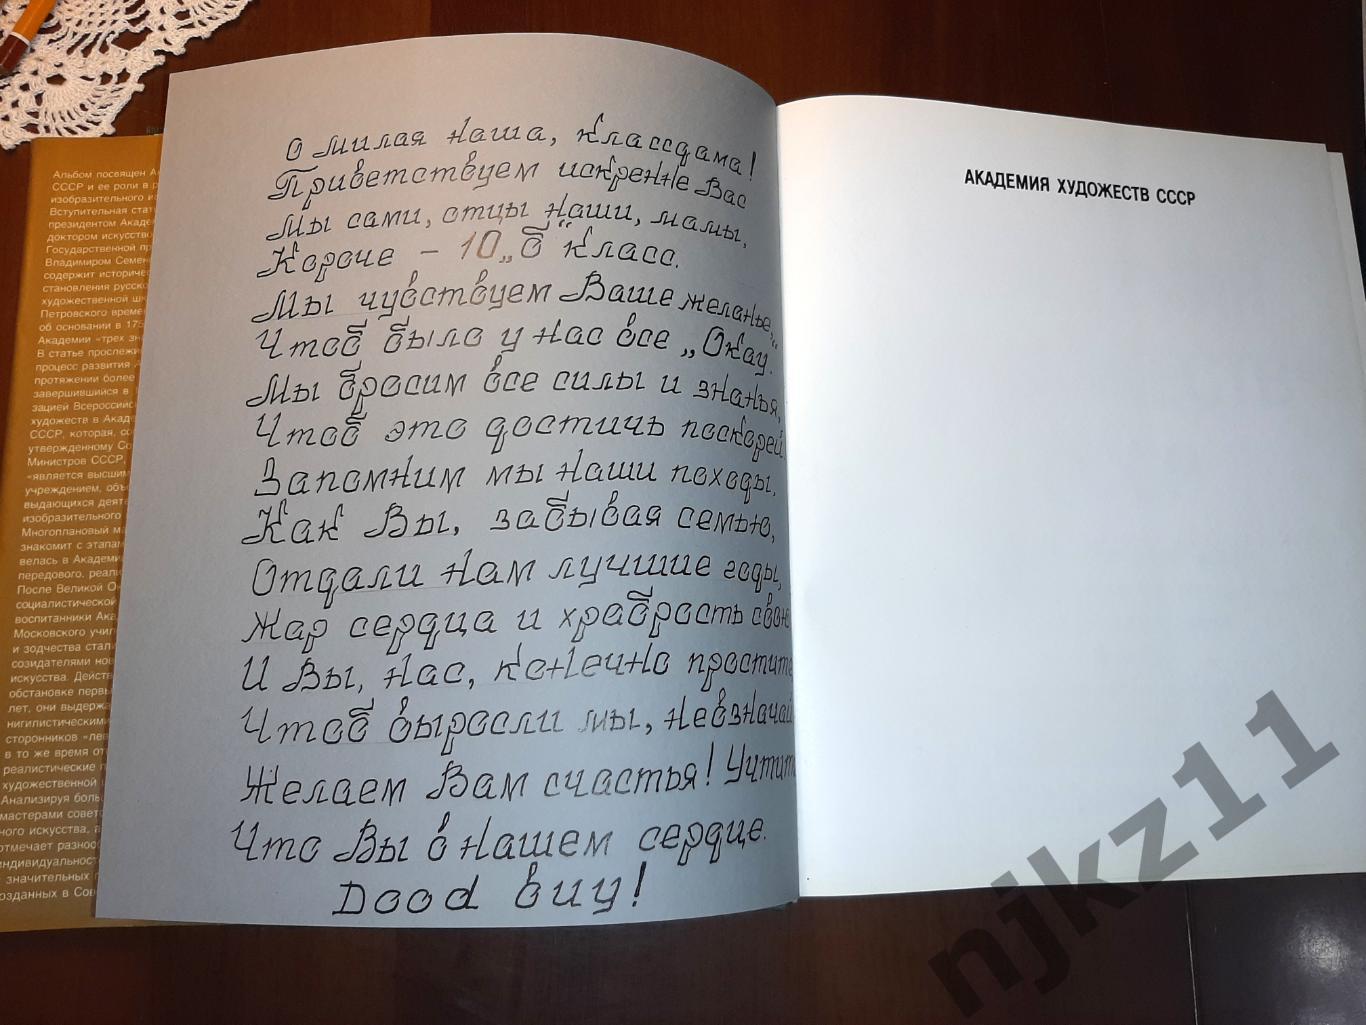 Альбом посвящен
СССР и ее роли в
изобразительного
Вступительная
президентом
доктором
Государственной
Владимиром
содержит
становления
художественной
Петровского
об основании в
Академии «трех
В статье
процесс развития
протяжении более
завершившийся в
зацией
художеств в
СССР, которая,
утвержденному
Министров СССР,
«является высшим
учреждением,
выдающихся
изобразительного
Многоплановый
знакомит с
велась в
передового,
После Великой
социалистической
воспитанники
Московского
и зодчества
созидателями
искусства.
обстановке
лет, они
нигилистическими
сторонников
в то же время
реалистические
художественной
Анализируя
мастерами
искусства,
отмечает
значительных
в
О милая наша, классдама!
Приветствуем искренне Вас
Мы сами, отцы наши, мамы,
Короче – 10 „б“ класс.
Мы чувствуем Ваше желанье,
Чтоб было у нас все „Окау“.
Мы бросим все силы и знанья,
Чтоб это достичь поскорей
Запомним мы наши походы,
Как Вы, забывая семью,
Отдали нам лучшие годы,
Жар сердца и храбрость
И Вы, нас, конечно
Чтоб выросли мы,
Желаем Вам счастья!
Что Вы в нашем сердце.
Dood buy!
АКАДЕМИЯ ХУДОЖЕСТВ СССР
njkz11